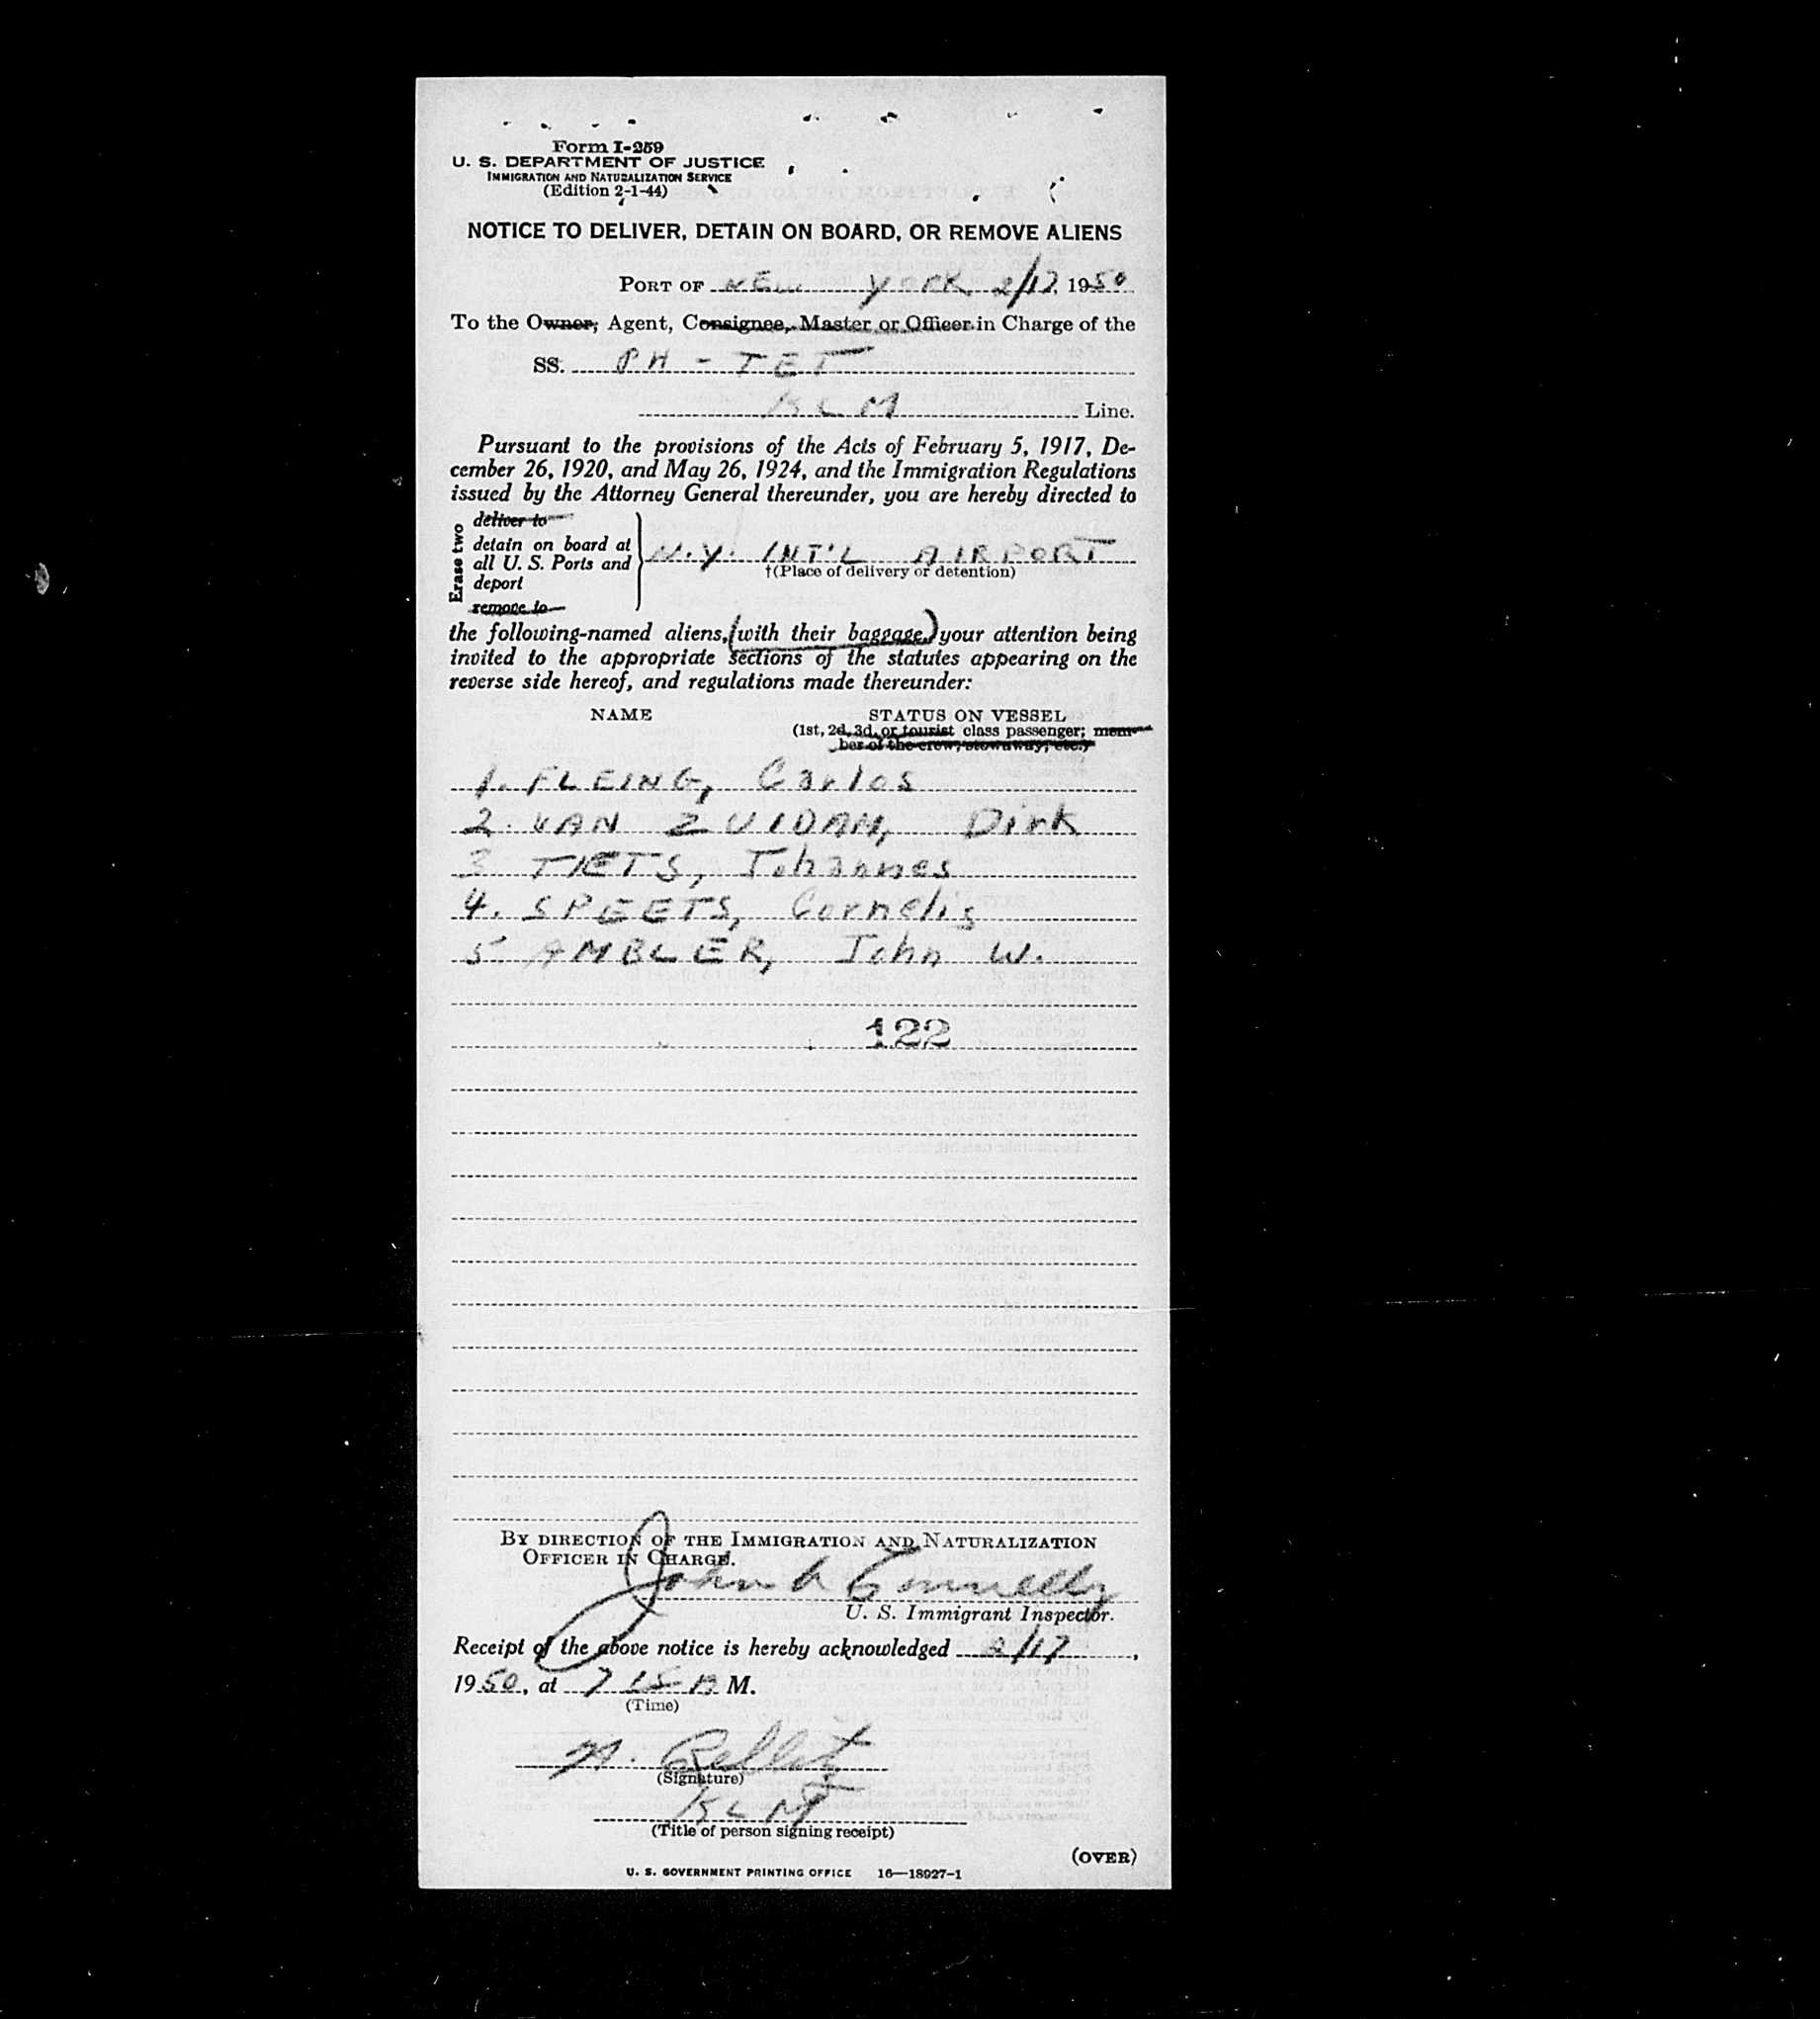 Form I-259
U. S. DEPARTMENT OF JUSTICE
IMMIGRATION AND NATURALIZATION SERVICE
(Edition 2-1-44)
NOTICE TO DELIVER, DETAIN ON BOARD, OR REMOVE ALIENS
PORT OF NEW YORK 2/17, 1950
To the Owner, Agent, Consignee, Master or Officer in Charge of the
SS. PH - TET
KLM Line.
Pursuant to the provisions of the Acts of February 5, 1917, De-
cember 26, 1920, and May 26, 1924, and the Immigration Regulations
issued by the Attorney General thereunder, you are hereby directed to
Erase two
deliver to
detain on board at
all U. S. Ports and
deport
remove to
N.Y. INT'L AIRPORT
†(Place of delivery or detention)
the following-named aliens, (with their baggage,) your attention being
invited to the appropriate sections of the statutes appearing on the
reverse side hereof, and regulations made thereunder:
NAME STATUS ON VESSEL
(1st, 2d, 3d, or tourist class passenger; mem-
ber of the crew, stowaway, etc.)
1. FLEING, Carlos
2. VAN ZUIDAM, Dirk
3 TIETS, Johannes
4. SPEETS, Cornelis
5 AMBLER, John W.
122
BY DIRECTION OF THE IMMIGRATION AND NATURALIZATION
OFFICER IN CHARGE.
John A Connelly
U. S. Immigrant Inspector.
Receipt of the above notice is hereby acknowledged 2/17,
1950, at 7 15 A M.
(Time)
(Signature)
KLM
(Title of person signing receipt)
(OVER)
U. S. GOVERNMENT PRINTING OFFICE 16—18927-1